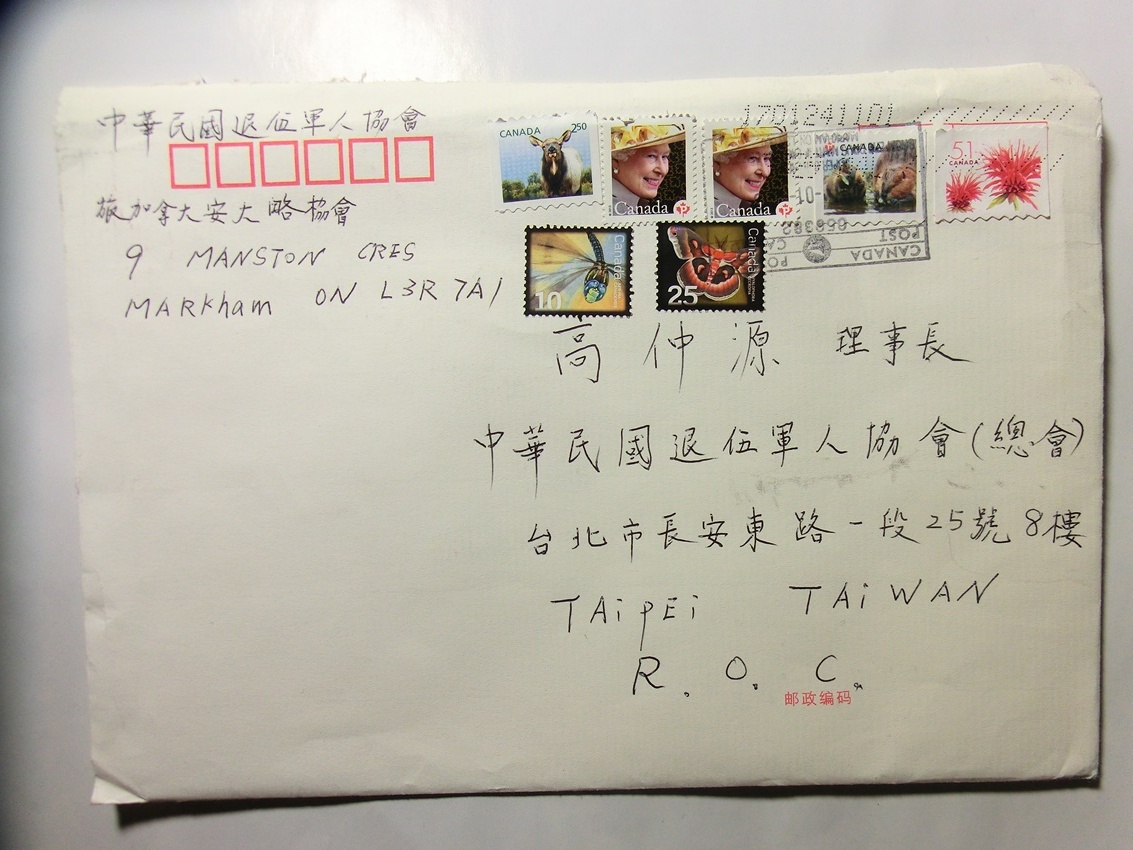 中華民國退伍軍人協會
旅加拿大安大略協會
9 MANSTON CRES
MARKham ON L3R 7A1
CANADA 250
Canada P
Canada P
CANADA
51
CANADA
1701241101
056382
CANADA
POST
10
Canada
25
Canada
高仲源 理事長
中華民國退伍軍人協會(總會)
台北市長安東路一段25號8樓
TAiPEi TAiWAN
R.O.C.
邮政编码